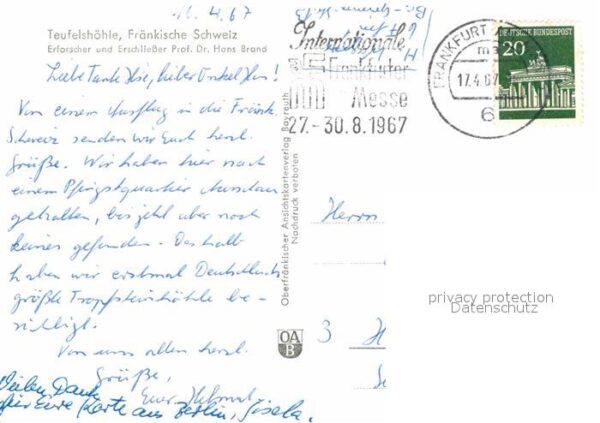 16.4.67
Teufelshöhle, Fränkische Schweiz
Erforscher und Erschließer Prof. Dr. Hans Brand
Liebe Tante Ilse, lieber Onkel Hans!
Von einem Ausflug in die Fränk.
Schweiz senden wir Euch herzl.
Grüße. Wir haben hier nach
einem Pfingstquartier Ausschau
gehalten, bis jetzt aber noch
keines gefunden. Deshalb
haben wir erstmal Deutschlands
größte Tropfsteinhöhle be-
sichtigt.
Von uns allen herzl.
Grüße,
Euer Helmut
Vielen Dank
für Eure Karte aus Berlin, Gisela.
Oberfränkischer Ansichtskartenverlag Bayreuth
Nachdruck verboten
OA
B
Internationale
Frankfurter
Messe
27.-30.8.1967
FRANKFURT
17.4.67
6
DEUTSCHE BUNDESPOST
20
Herrn
3
privacy protection
Datenschutz